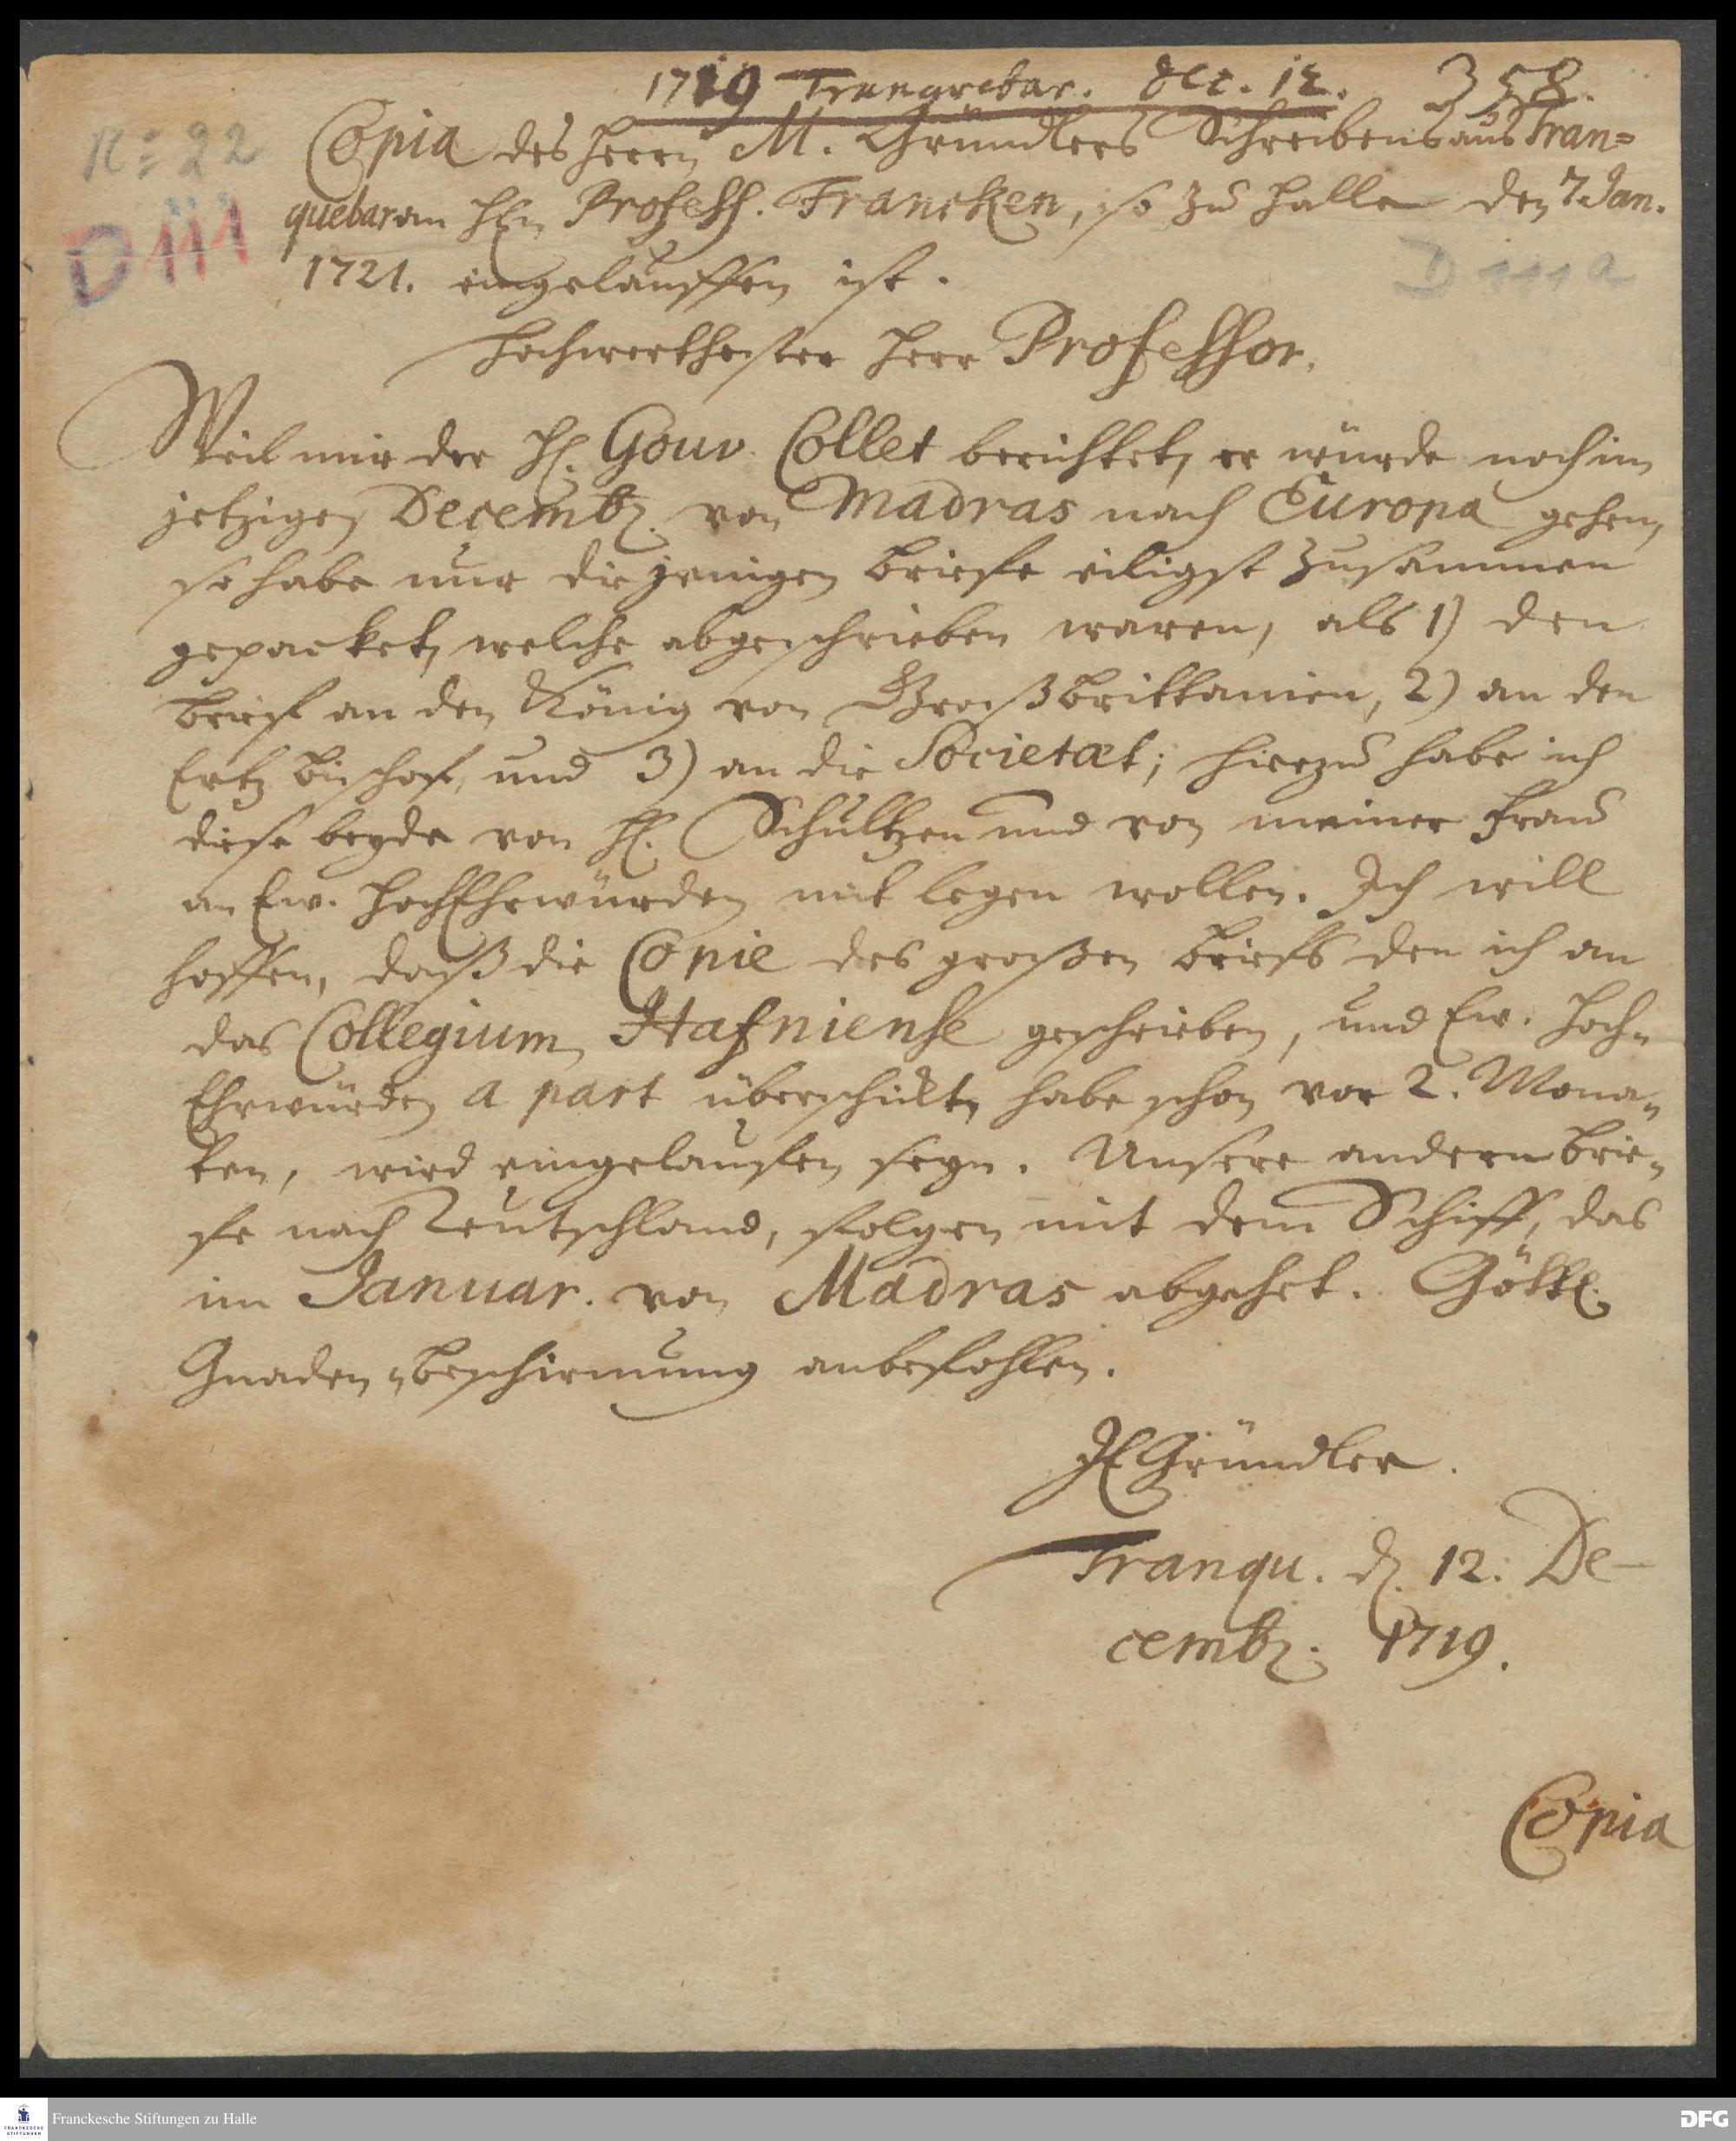 1719 Tranqvebar. Dec. 12. 358.
N: 22
Copia des Herrn M. Gründlers Schreibens aus Tran=
quebar an HEn Profess. Francken, so zu Halle den 7 Jan.
D 111
1721. eingelauffen ist.
D 111 a
Hochwerthester Herr Professor,
Weil mir der H. Gouv. Collet berichtet, er würde noch im
jetzigen Decembr. von Madras nach Europa gehen,
so habe nur diejenigen briefe eiligst zusammen
gepacket, welche abgeschrieben waren, als 1) den
brief an den König von Großbrittanien, 2) an den
Ertz bischof, und 3) an die Societæt; hierzu habe ich
diese beyde von H. Schultzen und von meiner Frau
an Ew. HochEhrwürden mit legen wollen. Ich will
hoffen, daß die Copie des großen briefs den ich an
das Collegium Hafniense geschrieben, und Ew. Hoch=
Ehrwürden a part überschickt, habe schon vor 2. Mona=
ten, wird eingelaufen seyn. Unsere andern brie=
fe nach Teutschland, folgen mit dem Schiff, das
im Januar. von Madras abgehet. Göttl.
Gnaden=beschirmung anbefohlen.
JE Gründler.
Tranqu. d. 12. De-
cembr. 1719.
Copia
Franckesche Stiftungen zu Halle
FRANCKESCHE
STIFTUNGEN
DFG